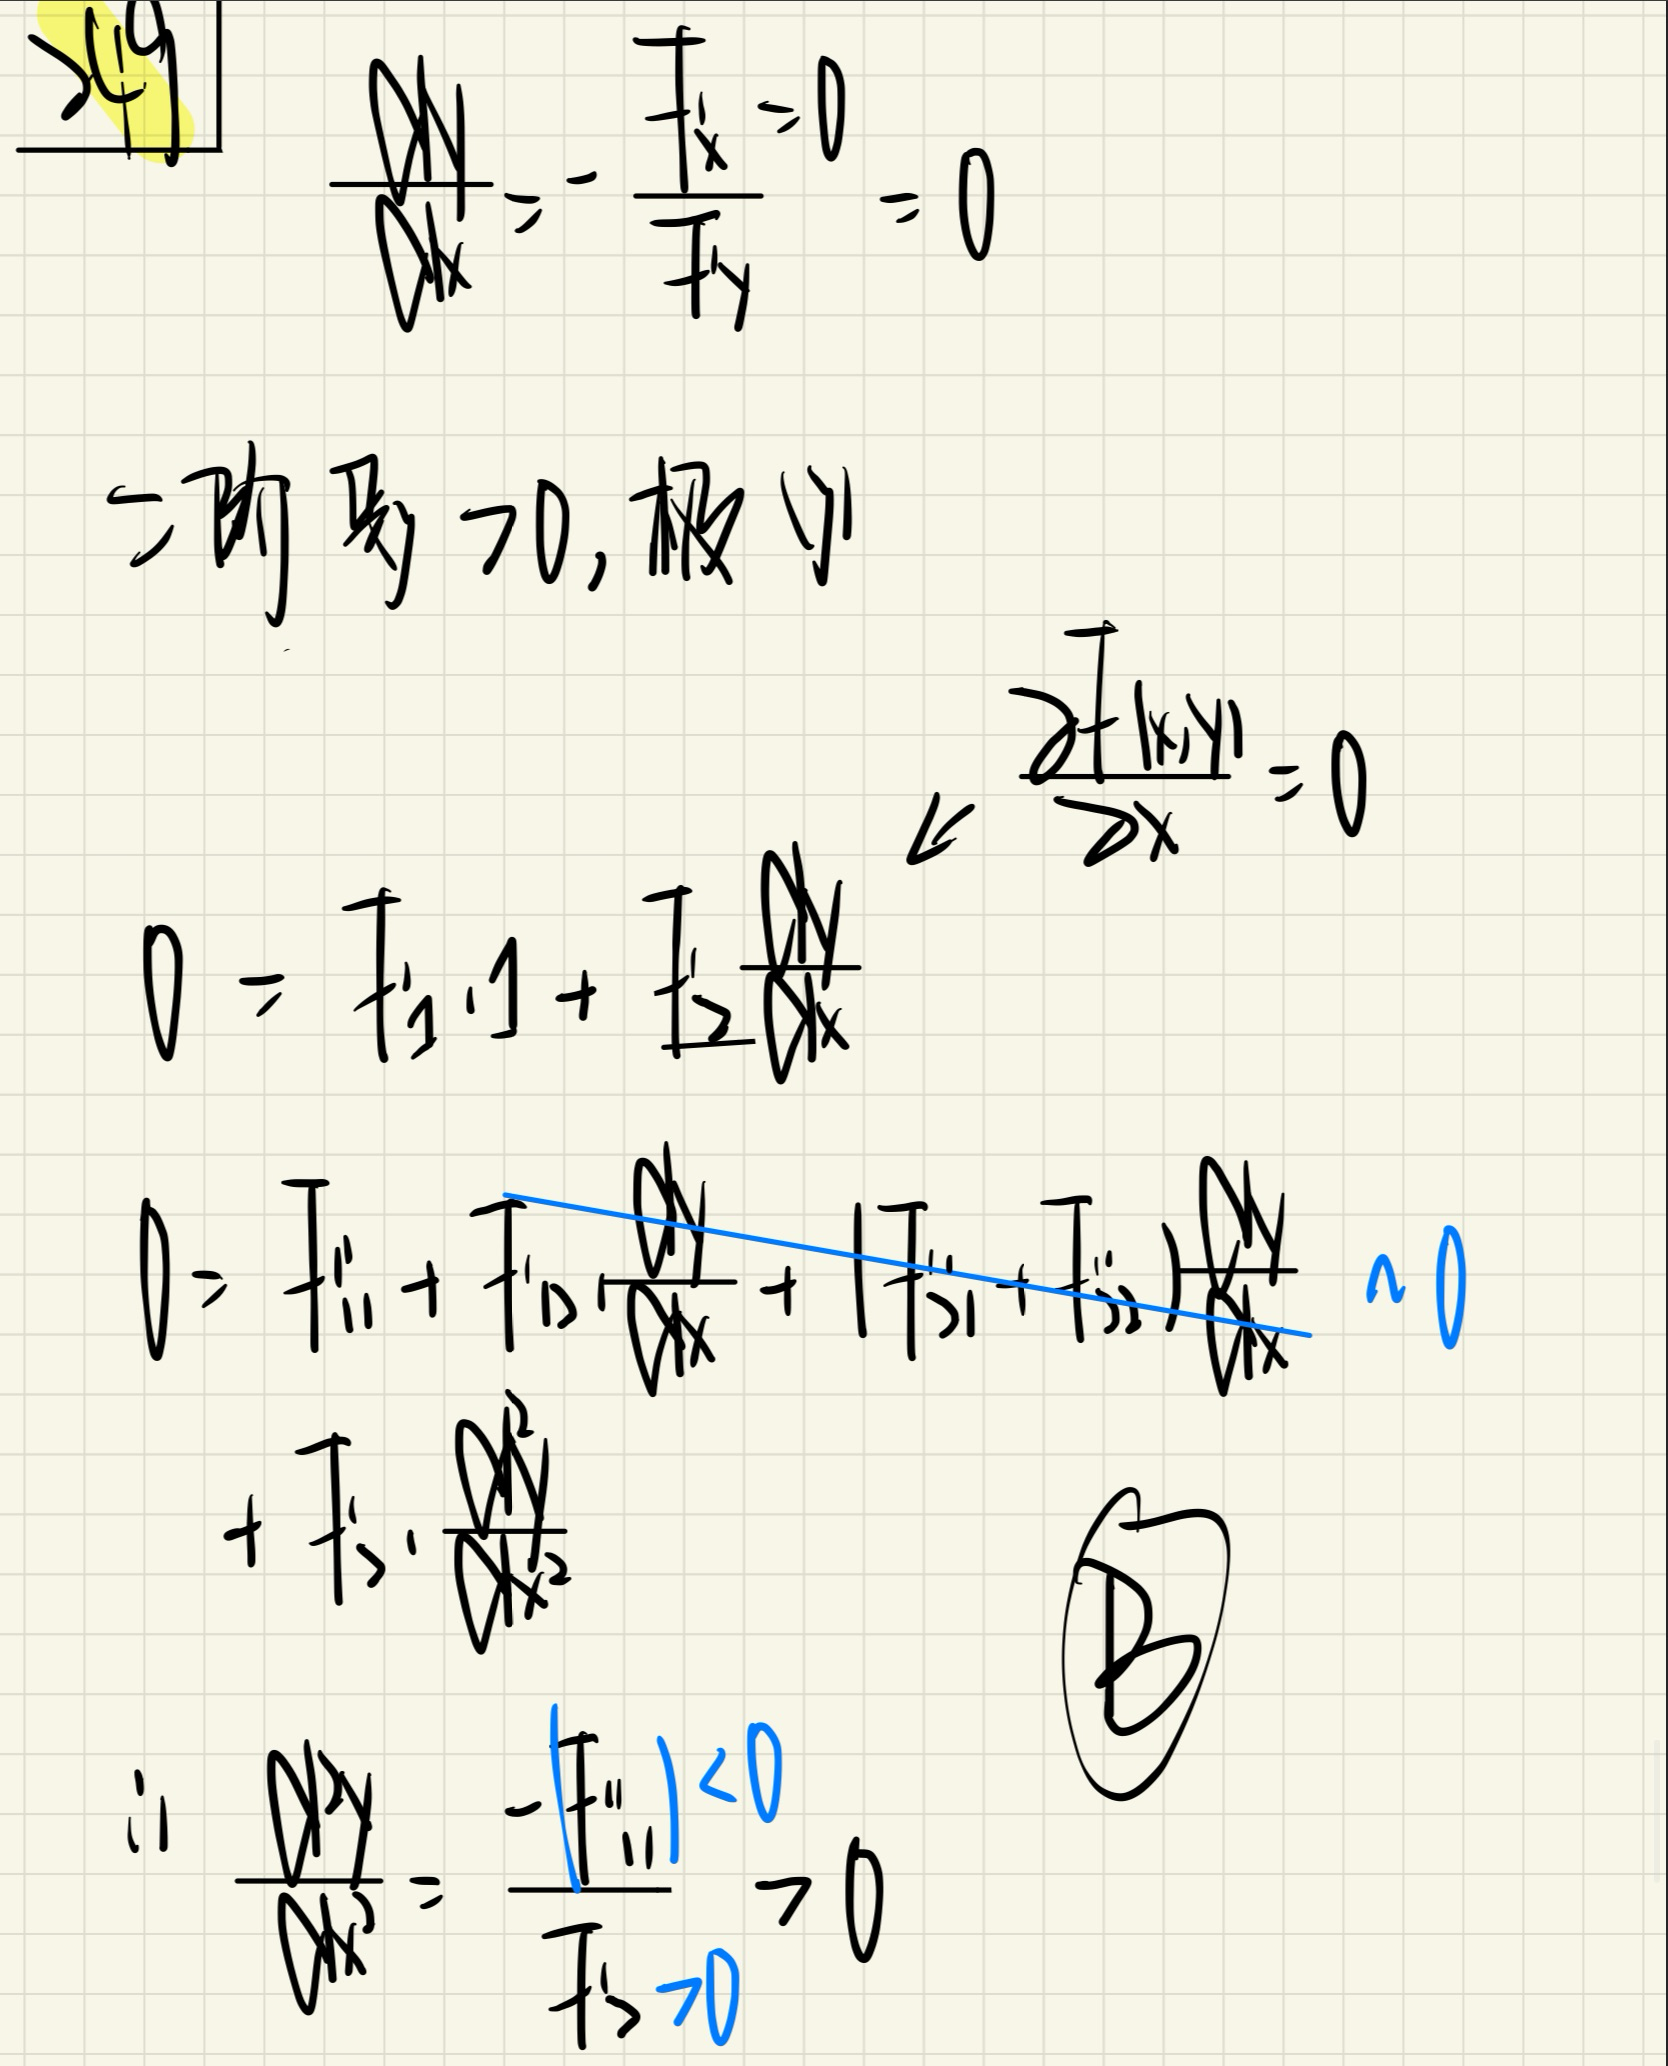 dy/dx = - F'x = 0 / F'y = 0
二阶导 > 0, 极小
∂F(x,y)/∂x = 0
0 = F'1 · 1 + F'2 dy/dx
0 = F''11 + F''12 · dy/dx + (F''21 + F''22) dy/dx ~ 0
+ F'2 · d²y/dx²
B
∴ d²y/dx² = -(F''11) < 0 / F'2 > 0 > 0